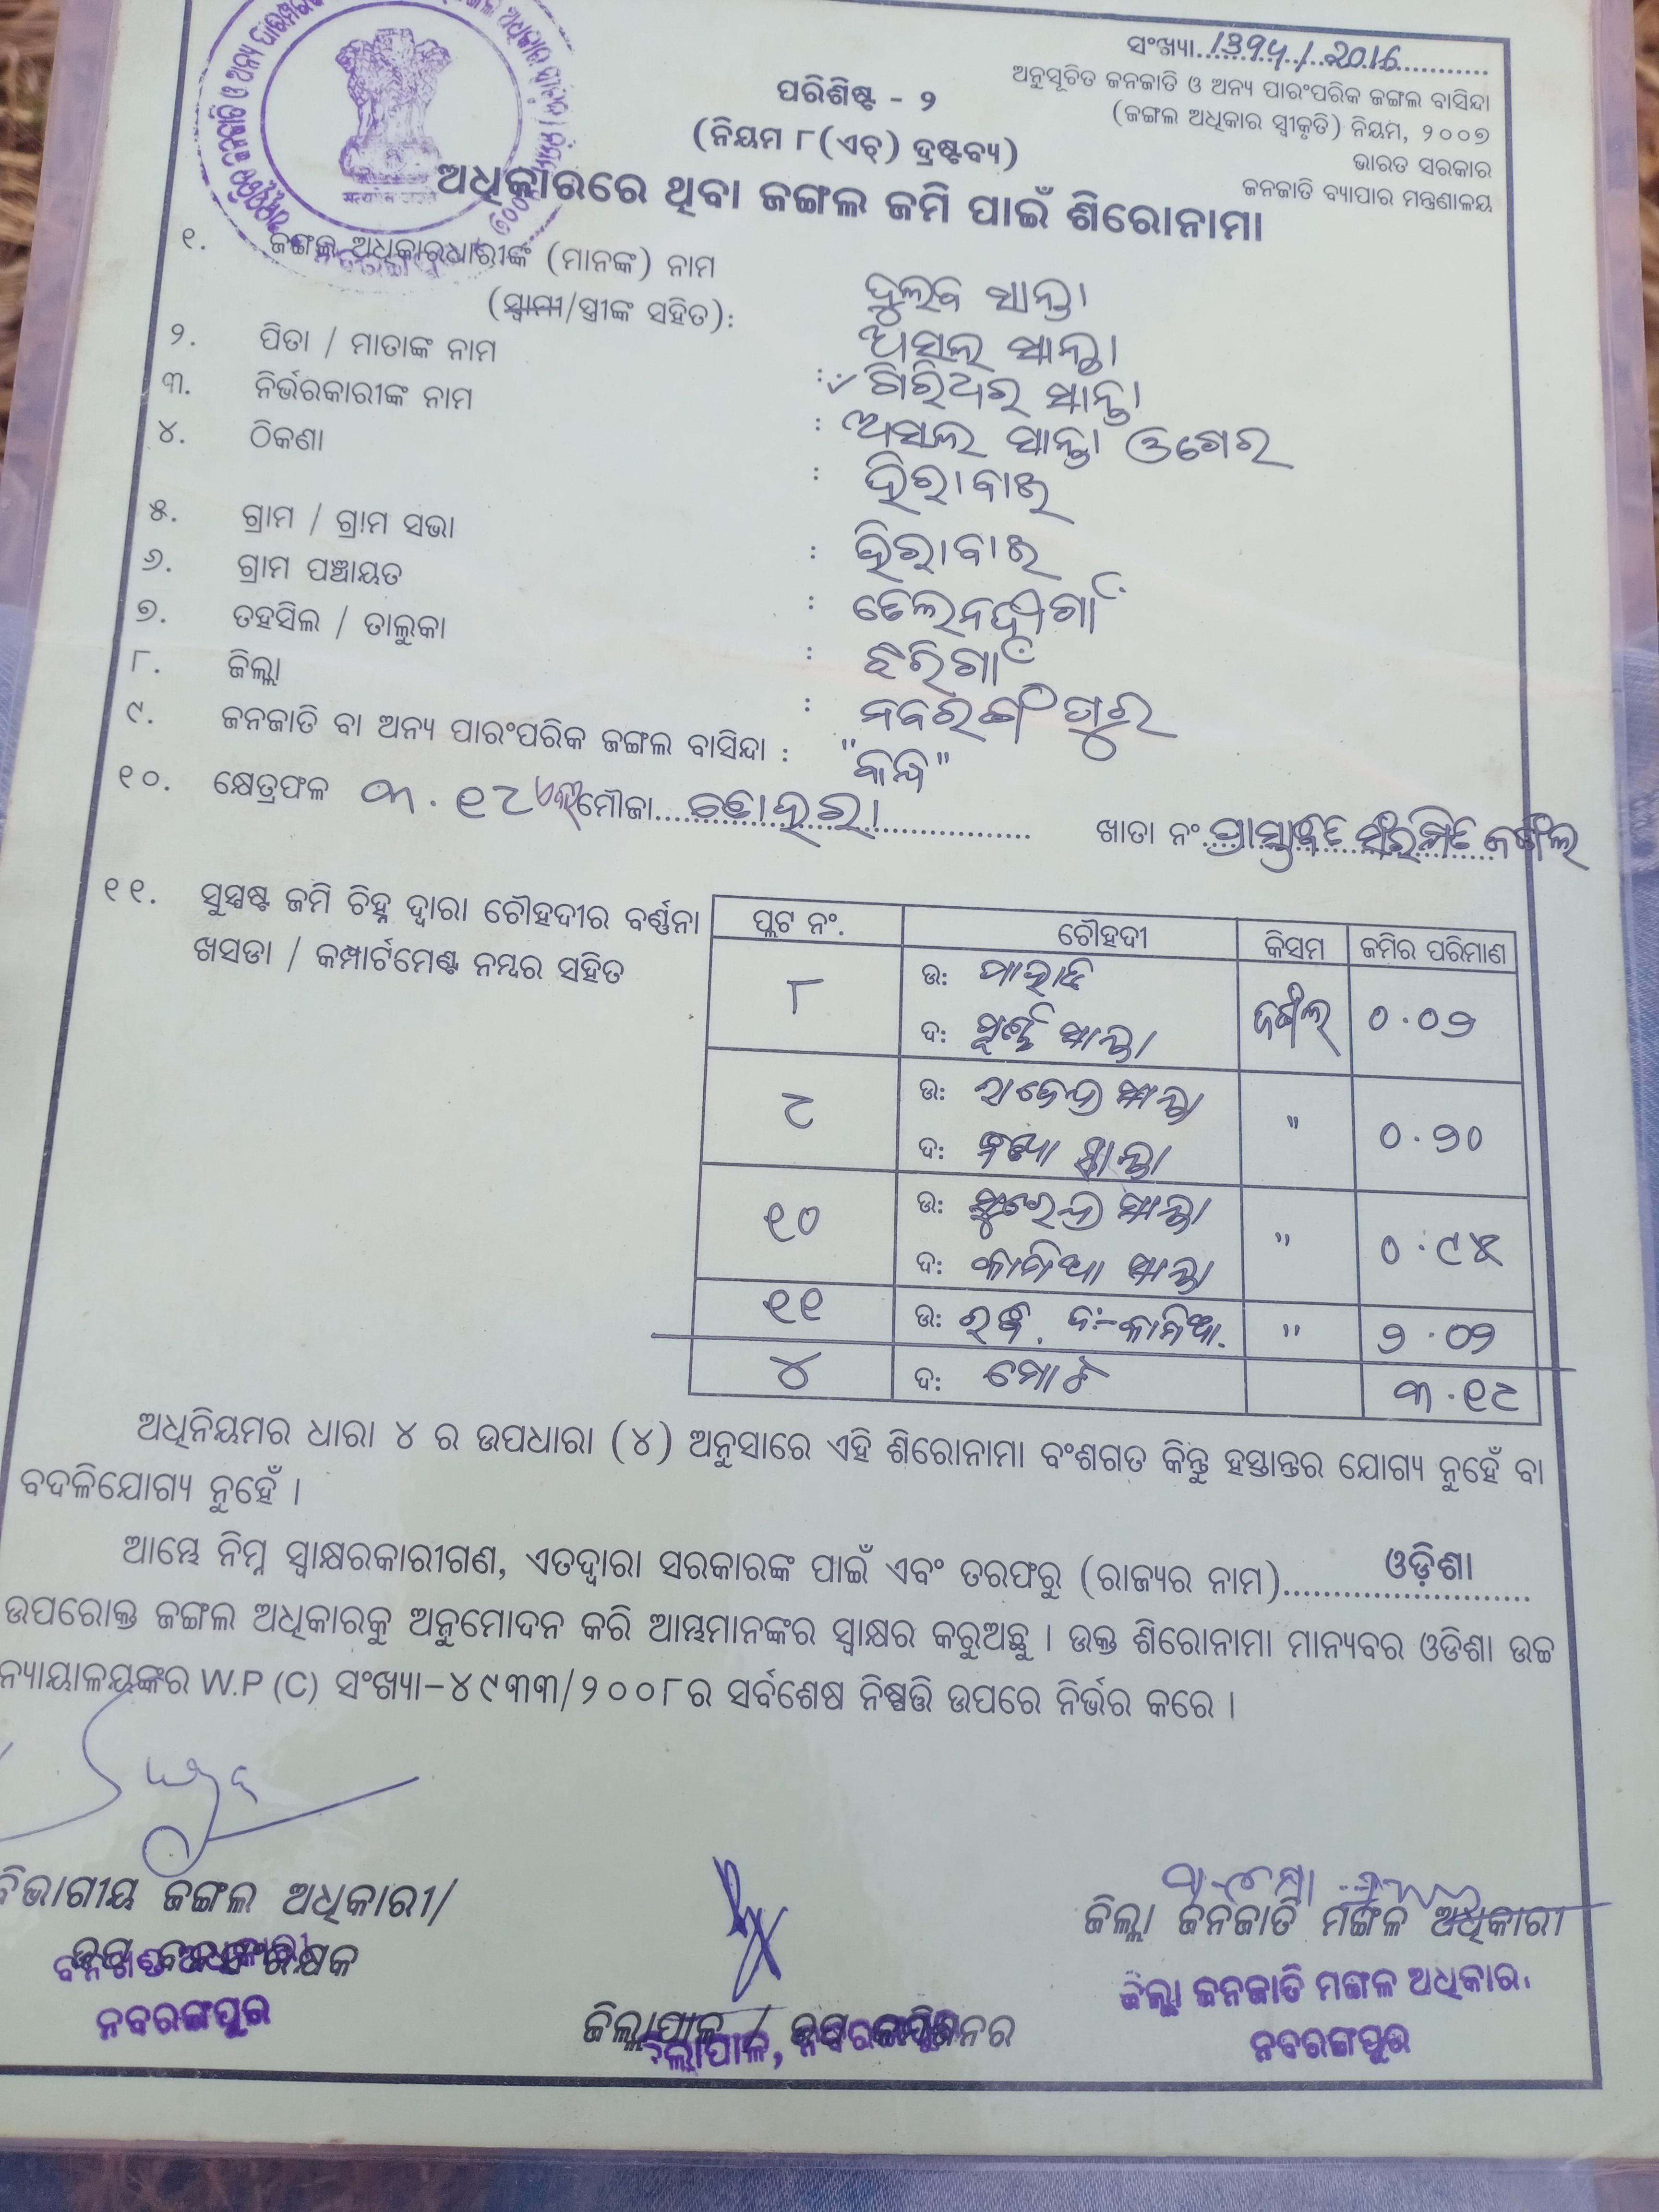 ସଂଖ୍ୟା..1375/2016
ଅନୁସୂଚିତ ଜନଜାତି ଓ ଅନ୍ୟ ପାରଂପରିକ ଜଙ୍ଗଲ ବାସିନ୍ଦା
(ଜଙ୍ଗଲ ଅଧିକାର ସ୍ୱୀକୃତି) ନିୟମ, ୨୦୦୭
ଭାରତ ସରକାର
ଜନଜାତି ବ୍ୟାପାର ମନ୍ତ୍ରଣାଳୟ
ପରିଶିଷ୍ଟ - ୨
(ନିୟମ ୮(ଏଚ୍) ଦ୍ରଷ୍ଟବ୍ୟ)
ଅଧିକାରରେ ଥିବା ଜଙ୍ଗଲ ଜମି ପାଇଁ ଶିରୋନାମା
୧. ଜଙ୍ଗଲ ଅଧିକାରଧାରୀଙ୍କ (ମାନଙ୍କ) ନାମ
(ସ୍ୱାମୀ/ସ୍ତ୍ରୀଙ୍କ ସହିତ): ଦୁଲବ ସାନ୍ତା
୨. ପିତା / ମାତାଙ୍କ ନାମ : ଅସଲ ସାନ୍ତା
୩. ନିର୍ଭରକାରୀଙ୍କ ନାମ : ଗିରିଧର ସାନ୍ତା
ଅସଲ ସାନ୍ତା ଓଗେର
୪. ଠିକଣା : ହିରାବାଇ
୫. ଗ୍ରାମ / ଗ୍ରାମ ସଭା : ହିରାବାଇ
୬. ଗ୍ରାମ ପଞ୍ଚାୟତ : ତେଲନଦୀଗାଁ
୭. ତହସିଲ / ତାଲୁକା : ଝରିଗାଁ
୮. ଜିଲ୍ଲା : ନବରଙ୍ଗପୁର
୯. ଜନଜାତି ବା ଅନ୍ୟ ପାରଂପରିକ ଜଙ୍ଗଲ ବାସିନ୍ଦା : "କନ୍ଧ"
୧୦. କ୍ଷେତ୍ରଫଳ ୩.୧୯ ଏକର ମୌଜା.. ଖାତା ନଂ ପ୍ରସ୍ତାବିତ ସଂରକ୍ଷିତ ଜଙ୍ଗଲ
୧୧. ସୁସ୍ପଷ୍ଟ ଜମି ଚିହ୍ନ ଦ୍ୱାରା ଚୌହଦୀର ବର୍ଣ୍ଣନା
ଖସଡା / କମ୍ପାର୍ଟମେଣ୍ଟ ନମ୍ବର ସହିତ
ପ୍ଲଟ ନଂ. ଚୌହଦୀ କିସମ ଜମିର ପରିମାଣ
୮ ଉ: ପାହାଡ ଜଙ୍ଗଲ ୦.୦୨
ଦ: ସାନ୍ତା
୯ ଉ: ରାଜେନ୍ଦ୍ର ସାନ୍ତା " ୦.୨୦
ଦ: ସାନ୍ତା
୧୦ ଉ: ସୁରେନ୍ଦ୍ର ସାନ୍ତା " ୦.୯୫
ଦ: ସାନ୍ତା
୧୧ ଉ: ଦ: " ୨.୦୨
୪ ଦ: ମୋଟ ୩.୧୯
ଅଧିନିୟମର ଧାରା ୪ ର ଉପଧାରା (୪) ଅନୁସାରେ ଏହି ଶିରୋନାମା ବଂଶଗତ କିନ୍ତୁ ହସ୍ତାନ୍ତର ଯୋଗ୍ୟ ନୁହେଁ ବା
ବଦଳିଯୋଗ୍ୟ ନୁହେଁ ।
ଆମ୍ଭେ ନିମ୍ନ ସ୍ୱାକ୍ଷରକାରୀଗଣ, ଏତଦ୍ୱାରା ସରକାରଙ୍କ ପାଇଁ ଏବଂ ତରଫରୁ (ରାଜ୍ୟର ନାମ)....ଓଡ଼ିଶା....
ଉପରୋକ୍ତ ଜଙ୍ଗଲ ଅଧିକାରକୁ ଅନୁମୋଦନ କରି ଆମ୍ଭମାନଙ୍କର ସ୍ୱାକ୍ଷର କରୁଅଛୁ । ଉକ୍ତ ଶିରୋନାମା ମାନ୍ୟବର ଓଡିଶା ଉଚ୍ଚ
ନ୍ୟାୟାଳୟଙ୍କର W.P (C) ସଂଖ୍ୟା-୪୯୩୩/୨୦୦୮ର ସର୍ବଶେଷ ନିଷ୍ପତ୍ତି ଉପରେ ନିର୍ଭର କରେ ।
ବିଭାଗୀୟ ଜଙ୍ଗଲ ଅଧିକାରୀ/
ଉପ ବନ ସଂରକ୍ଷକ
ବନଖଣ୍ଡ ଅଧିକାରୀ
ନବରଙ୍ଗପୁର
ଜିଲ୍ଲାପାଳ / ଉପ କମିଶନର
ଜିଲ୍ଲାପାଳ, ନବରଙ୍ଗପୁର
ଜିଲ୍ଲା ଜନଜାତି ମଙ୍ଗଳ ଅଧିକାରୀ
ଜିଲ୍ଲା ଜନଜାତି ମଙ୍ଗଳ ଅଧିକାରୀ
ନବରଙ୍ଗପୁର